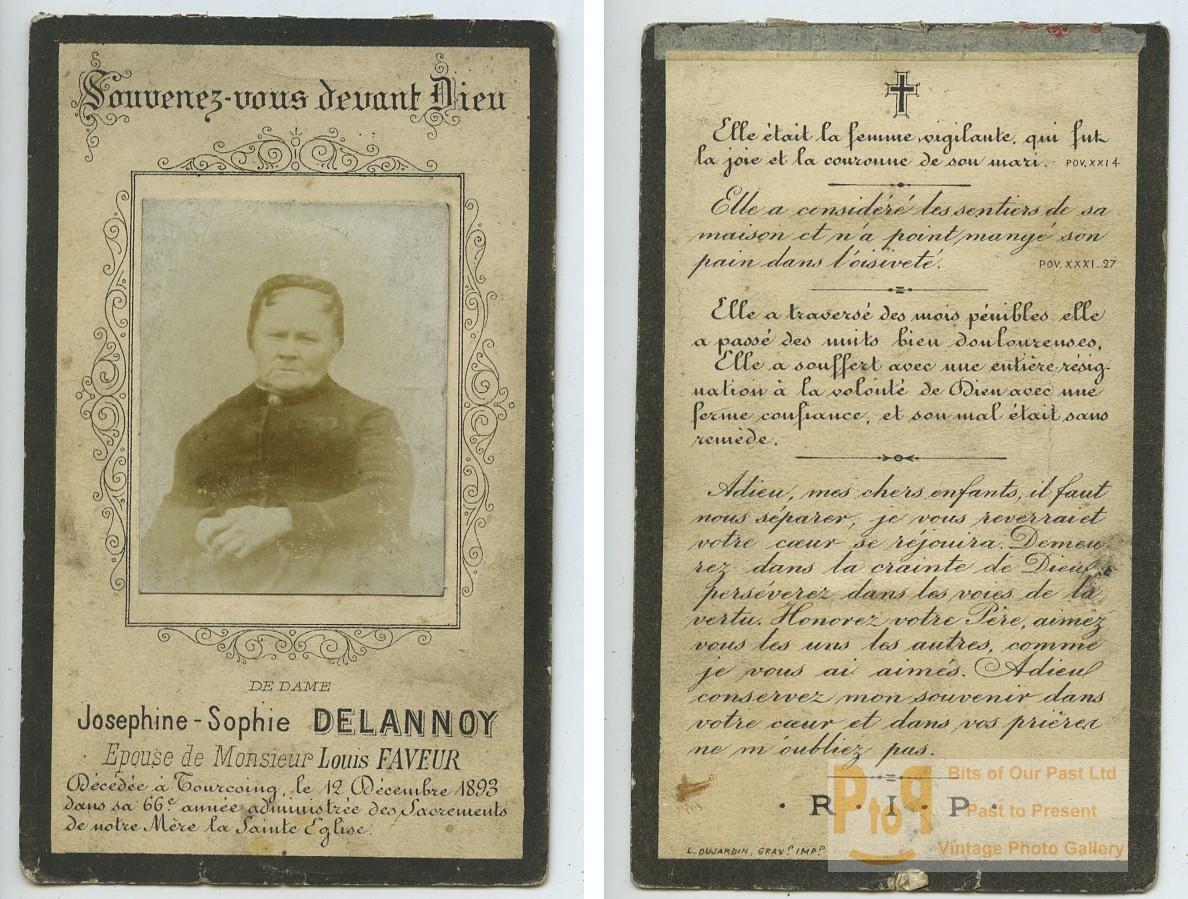 Souvenez-vous devant Dieu
DE DAME
Josephine-Sophie DELANNOY
Epouse de Monsieur Louis FAVEUR
Décédée à Tourcoing, le 12 Décembre 1893
dans sa 66e année administrée des Sacrements
de notre Mère la Sainte Eglise.
Elle était la femme vigilante, qui fut
la joie et la couronne de son mari. POV. XXI 4
Elle a considéré les sentiers de sa
maison et n'a point mangé son
pain dans l'oisiveté. POV. XXXI. 27
Elle a traversé des mois pénibles elle
a passé des nuits bien douloureuses,
Elle a souffert avec une entière résig-
nation à la volonté de Dieu avec une
ferme confiance, et son mal était sans
remède.
Adieu, mes chers enfants, il faut
nous séparer, je vous reverrai et
votre cœur se réjouira. Demeu
rez dans la crainte de Dieu,
persévérez dans les voies de la
vertu. Honorez votre Père, aimez
vous les uns les autres, comme
je vous ai aimés. Adieu
conservez mon souvenir dans
votre cœur et dans vos prières
ne m'oubliez pas.
· R · I · P ·
L. DUJARDIN, GRAVR IMPR
PtoP
Bits of Our Past Ltd
Past to Present
Vintage Photo Gallery